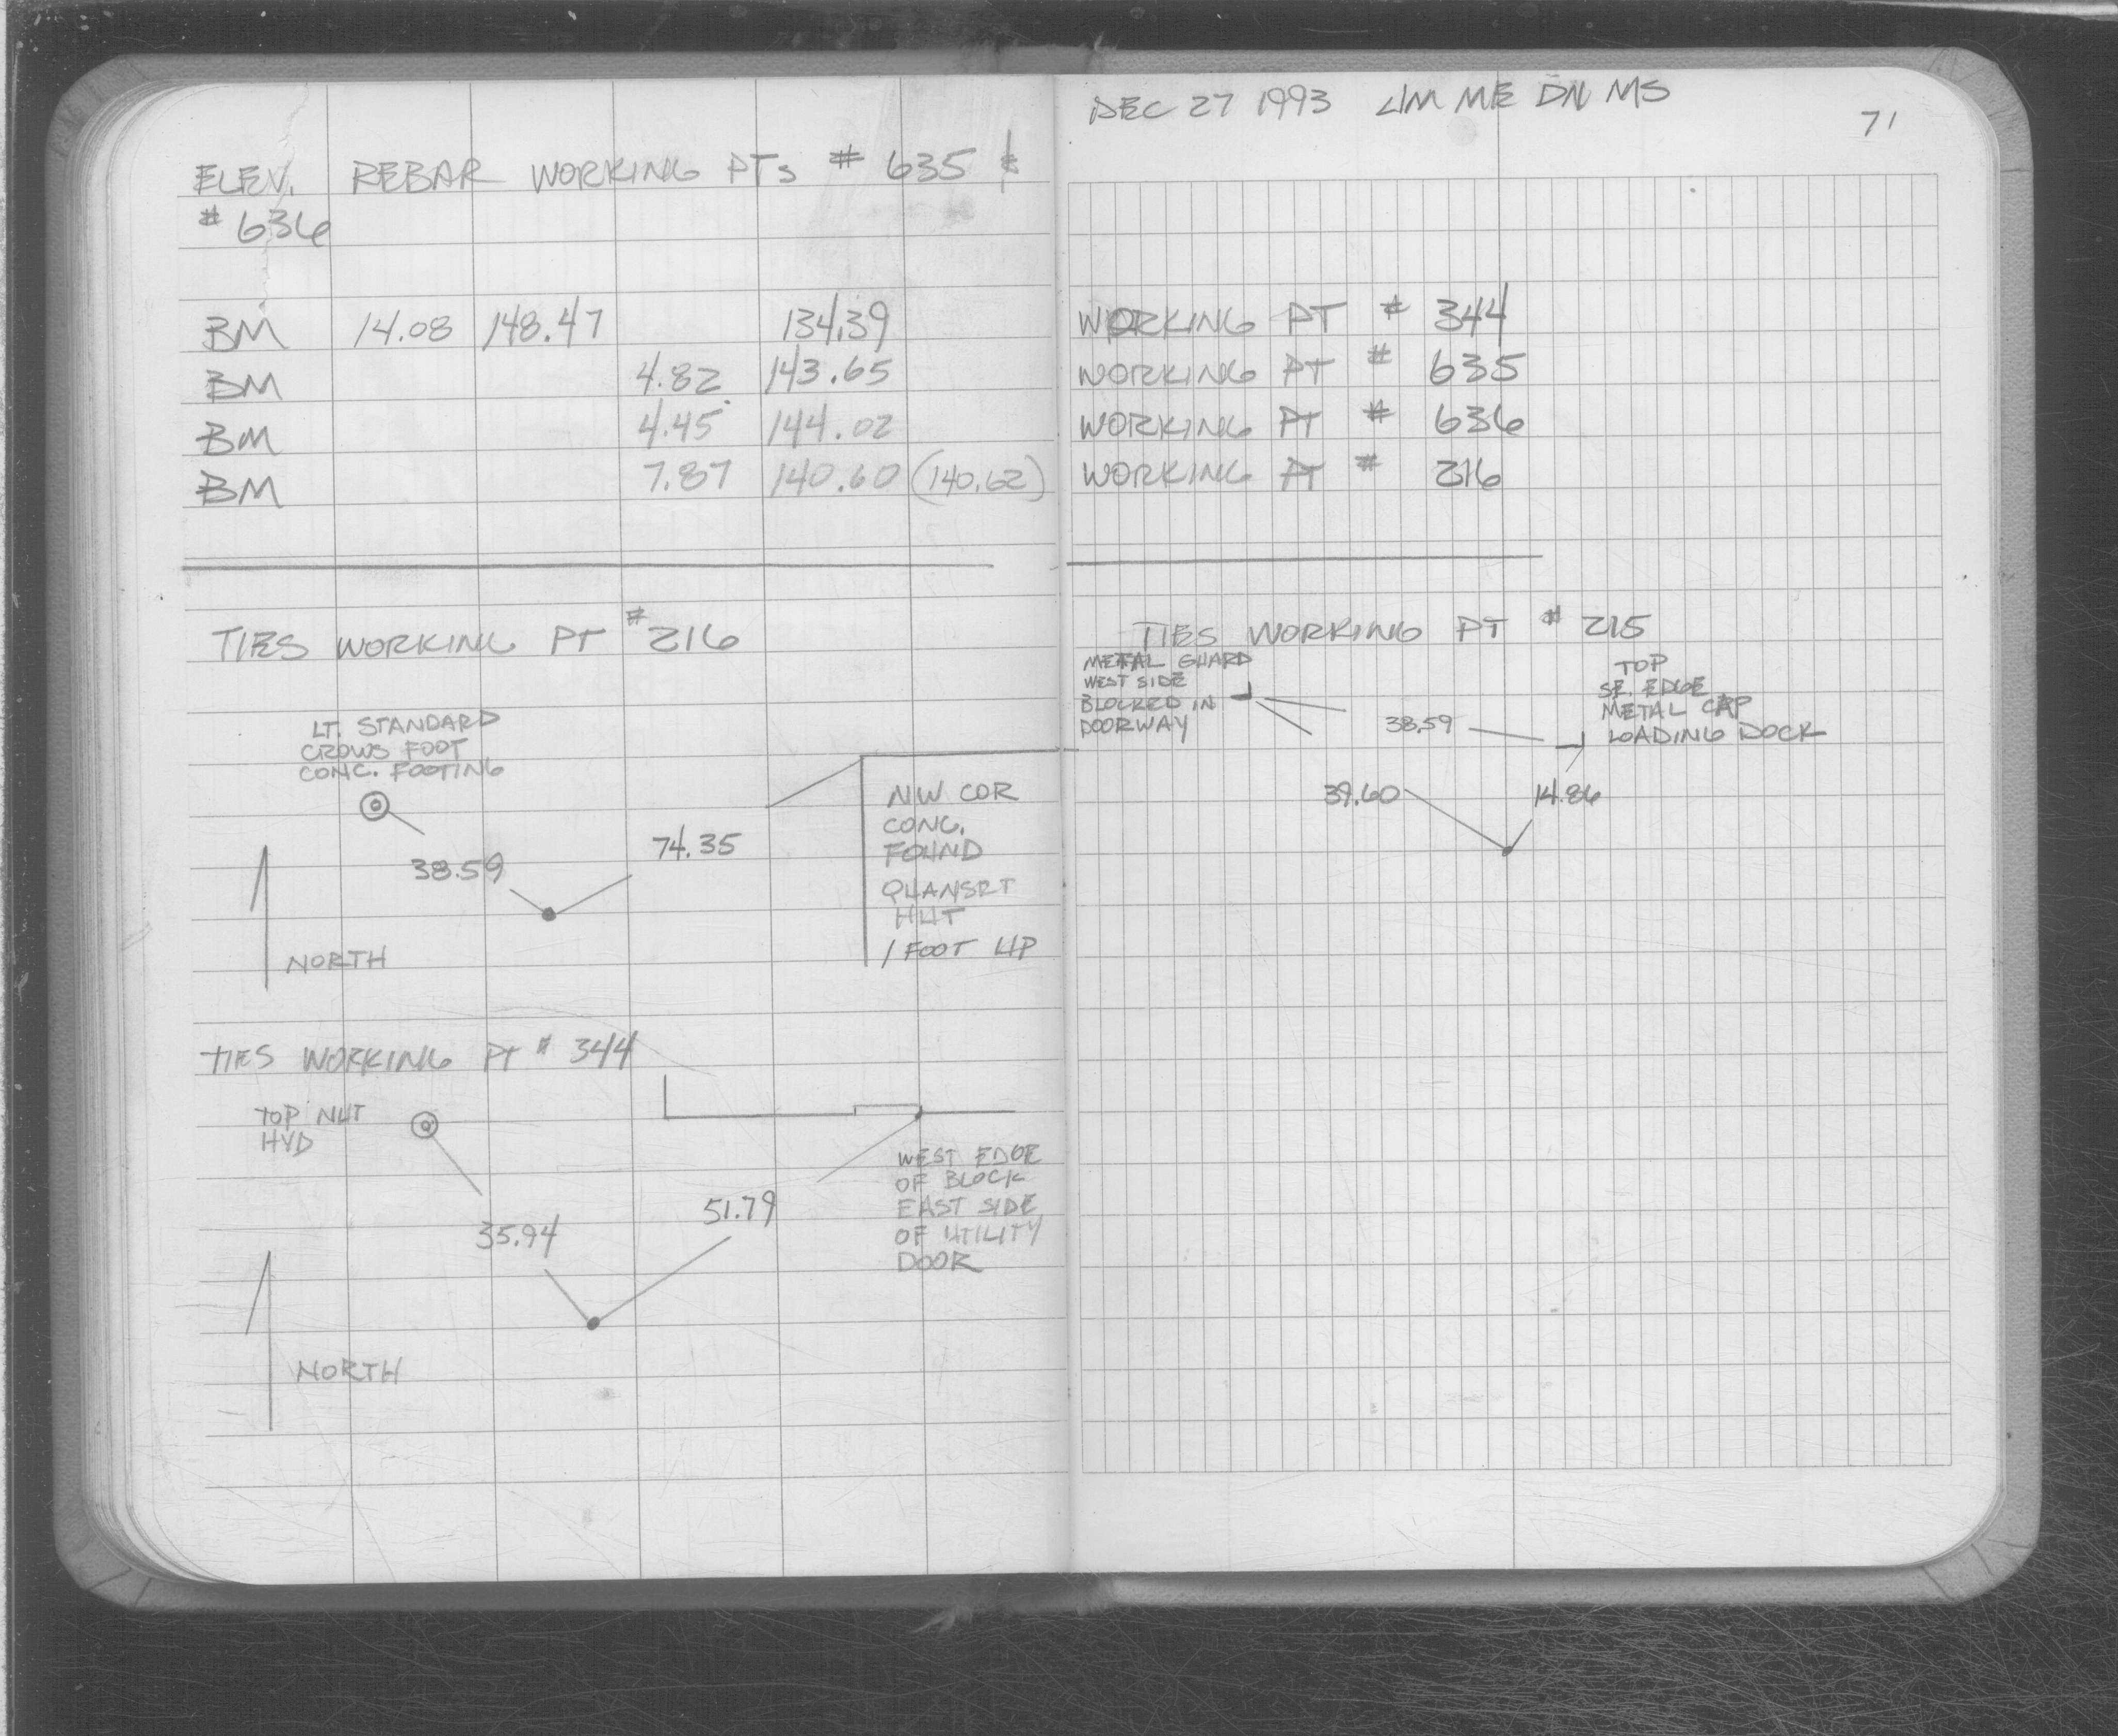 ELEV. REBAR WORKING PTs # 635 &
# 636
BM 14.08 148.47 134.39
BM 4.82 143.65
BM 4.45 144.02
BM 7.87 140.60 (140.62)
TIES WORKING PT # 216
LT. STANDARD
CROWS FOOT
CONC. FOOTING
38.59
74.35
NW COR
CONC.
FOUND
QUANSET
HUT
1 FOOT UP
NORTH
TIES WORKING PT # 344
TOP NUT
HYD
35.94
51.79
WEST EDGE
OF BLOCK
EAST SIDE
OF UTILITY
DOOR
NORTH
DEC 27 1993 JM ME DN MS
71
WORKING PT # 344
WORKING PT # 635
WORKING PT # 636
WORKING PT # 216
TIES WORKING PT # 215
METAL GUARD
WEST SIDE
BLOCKED IN
DOORWAY
38.59
TOP
SE. EDGE
METAL CAP
LOADING DOCK
39.60
14.86